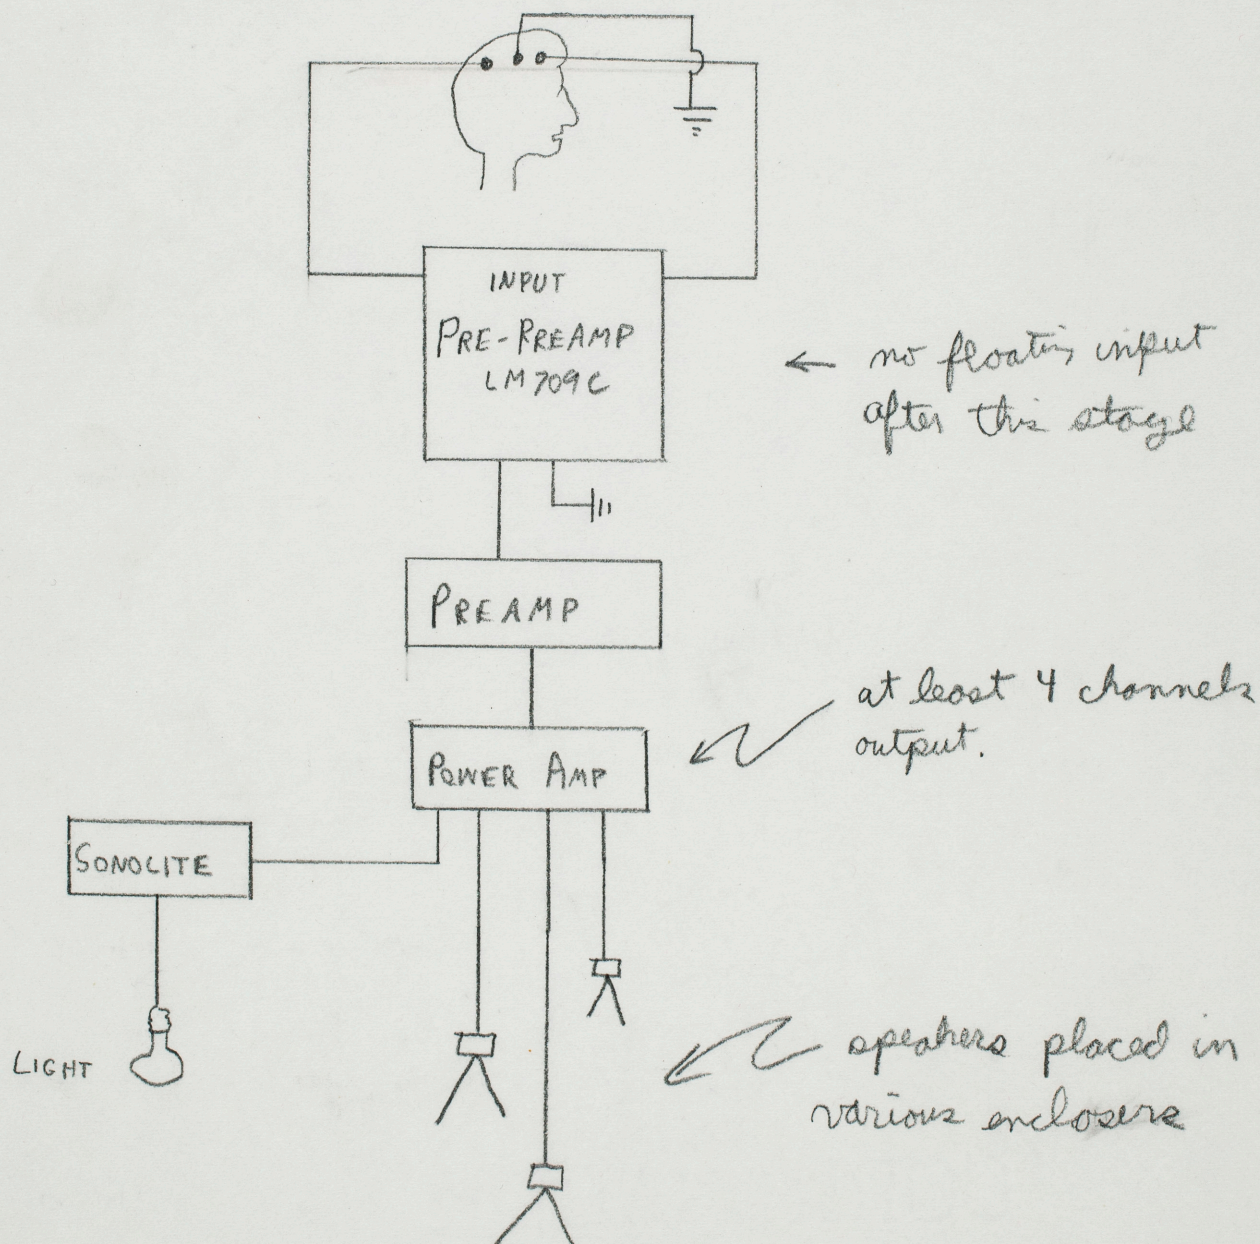 INPUT
PRE-PREAMP
LM709C
← no floatin input
after this stage
PREAMP
at least 4 channels
output.
POWER AMP
SONOLITE
LIGHT
speakers placed in
various enclosers